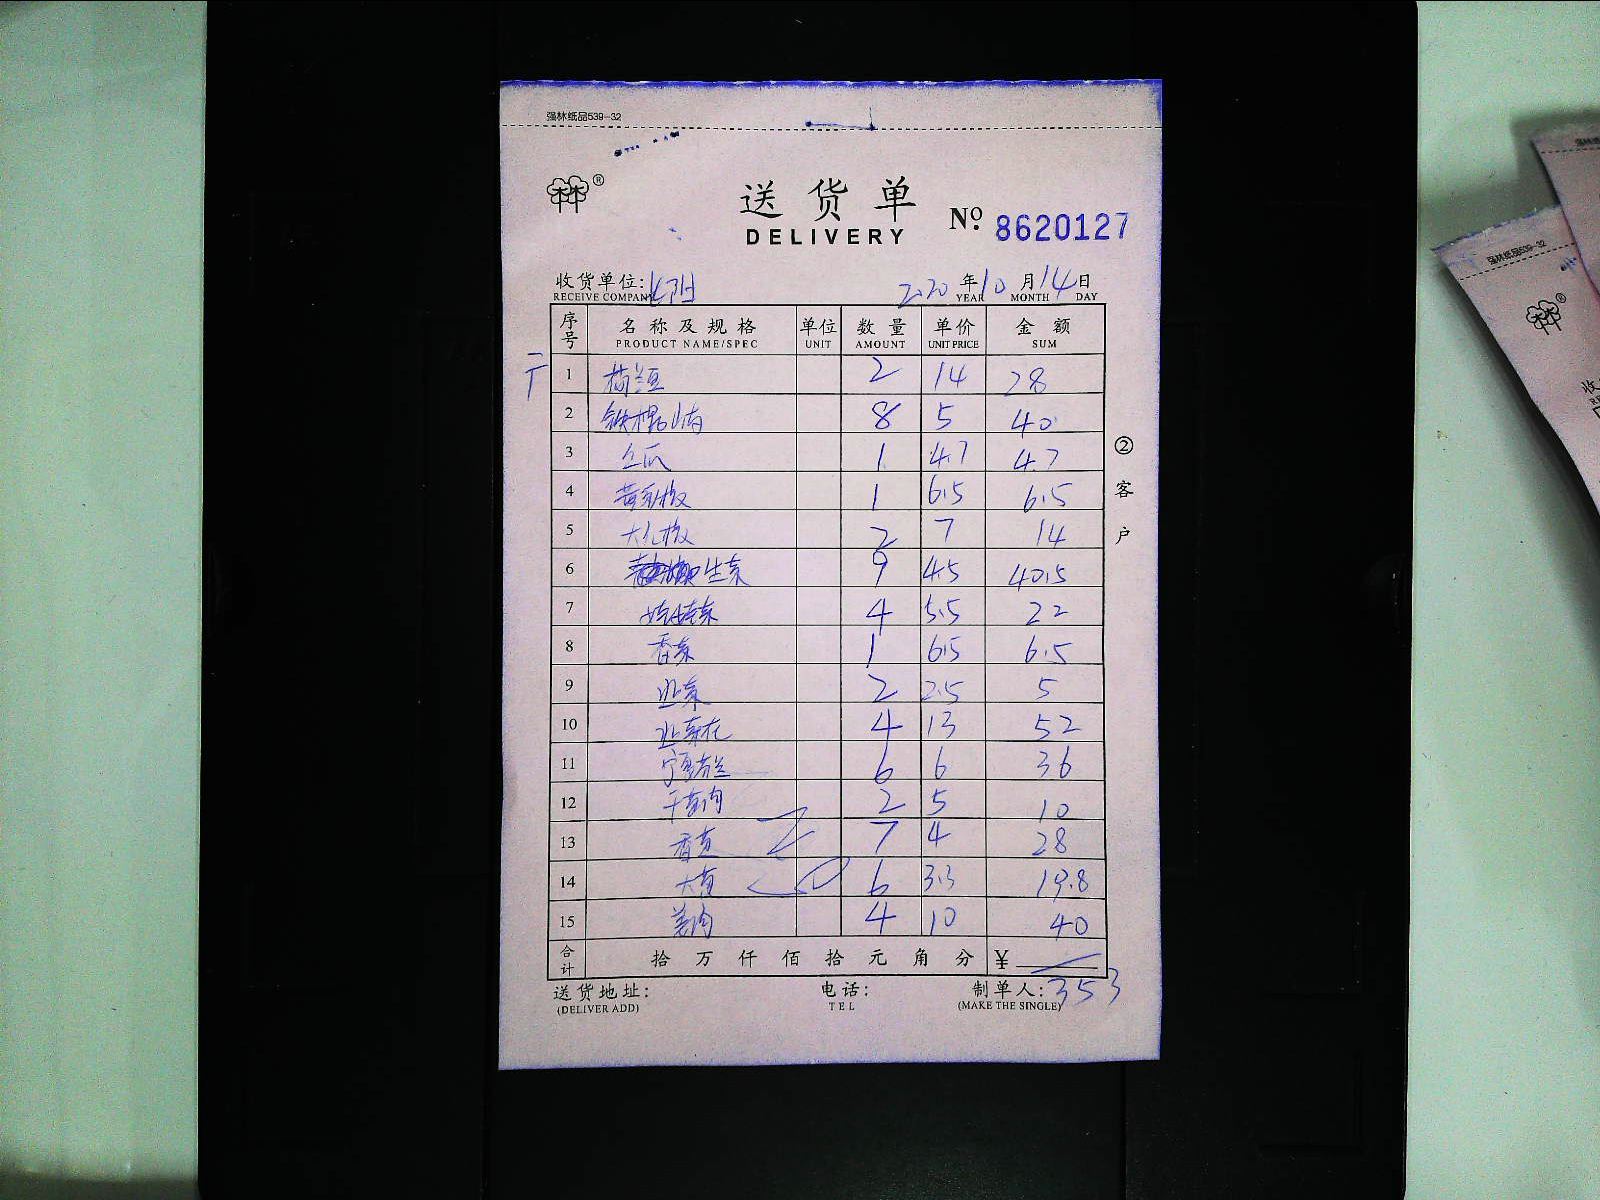 强林纸品539-32
®
送货单
DELIVERY
№ 8620127
收货单位:
RECEIVE COMPANY
2020 年 10 月 14 日
YEAR MONTH DAY
序号 名称及规格 单位 数量 单价 金额
PRODUCT NAME/SPEC UNIT AMOUNT UNIT PRICE SUM
1 荷兰豆 2 14 28
2 铁棍山药 8 5 40
3 丝瓜 1 4.7 4.7
4 黄彩椒 1 6.5 6.5
5 大红椒 2 7 14
6 生菜 9 4.5 40.5
7 娃娃菜 4 5.5 22
8 香菜 1 6.5 6.5
9 韭菜 2 2.5 5
10 韭菜花 4 13 52
11 宁夏芥兰 6 6 36
12 2 5 10
13 香芹 7 4 28
14 6 3.3 19.8
15 姜肉 4 10 40
合计 拾 万 仟 佰 拾 元 角 分 ¥
353
送货地址: 电话: 制单人:
(DELIVER ADD) TEL (MAKE THE SINGLE)
② 客户
强林纸品539-32
®